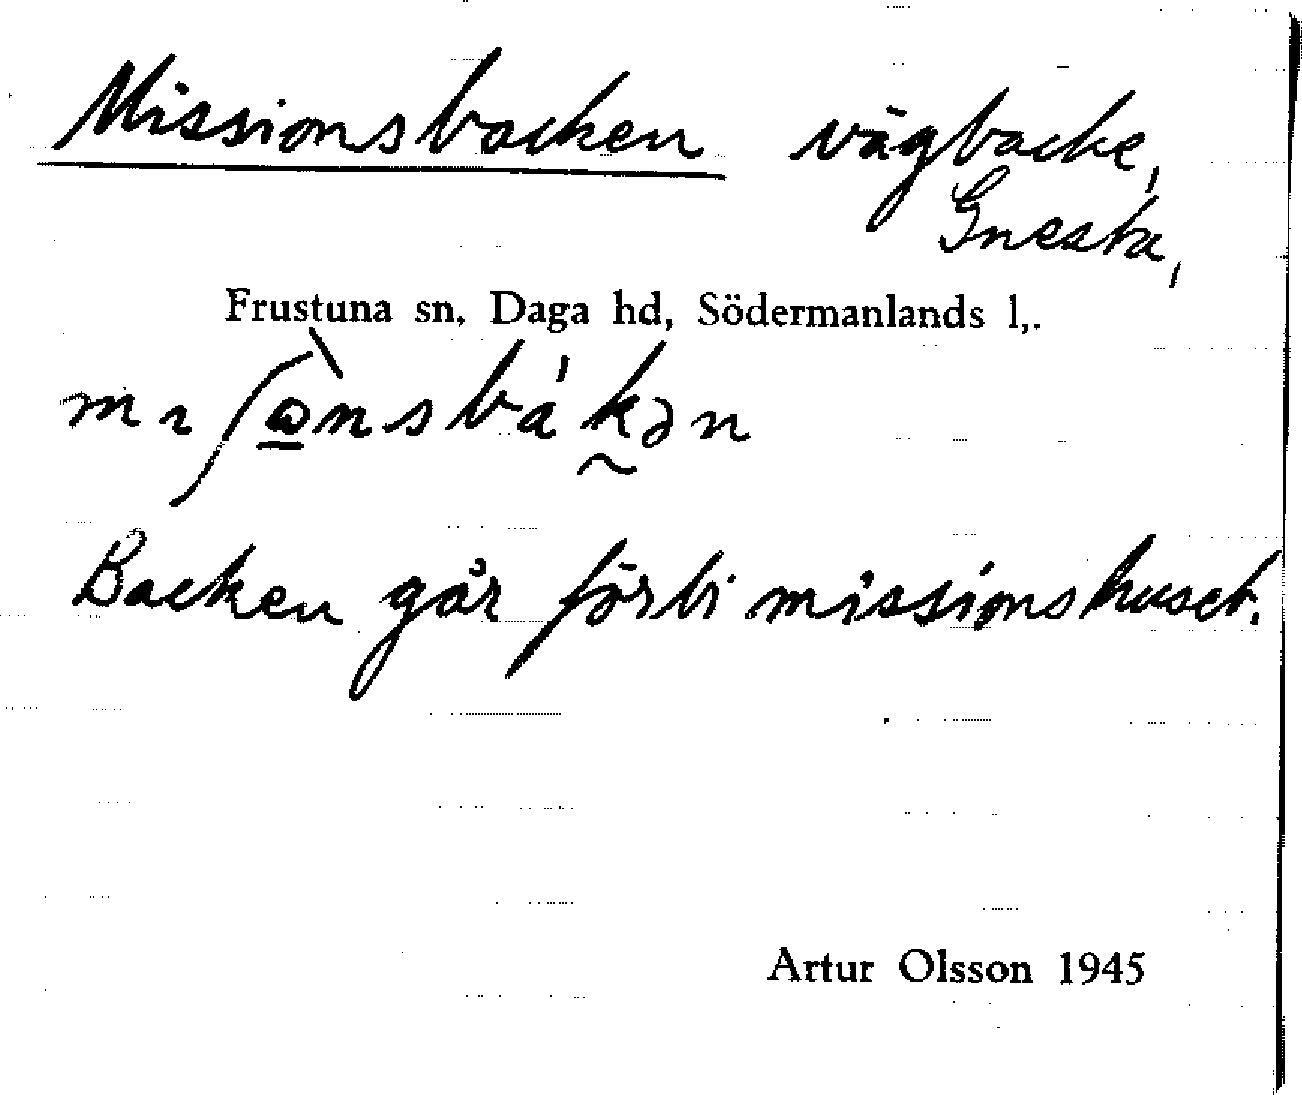 Missionsbacken vägbacke,
Gnesta,
Frustuna sn, Daga hd, Södermanlands l,.
mıʃὼ̲nsbá'kən
Backen går förbi missionshuset.
Artur Olsson 1945